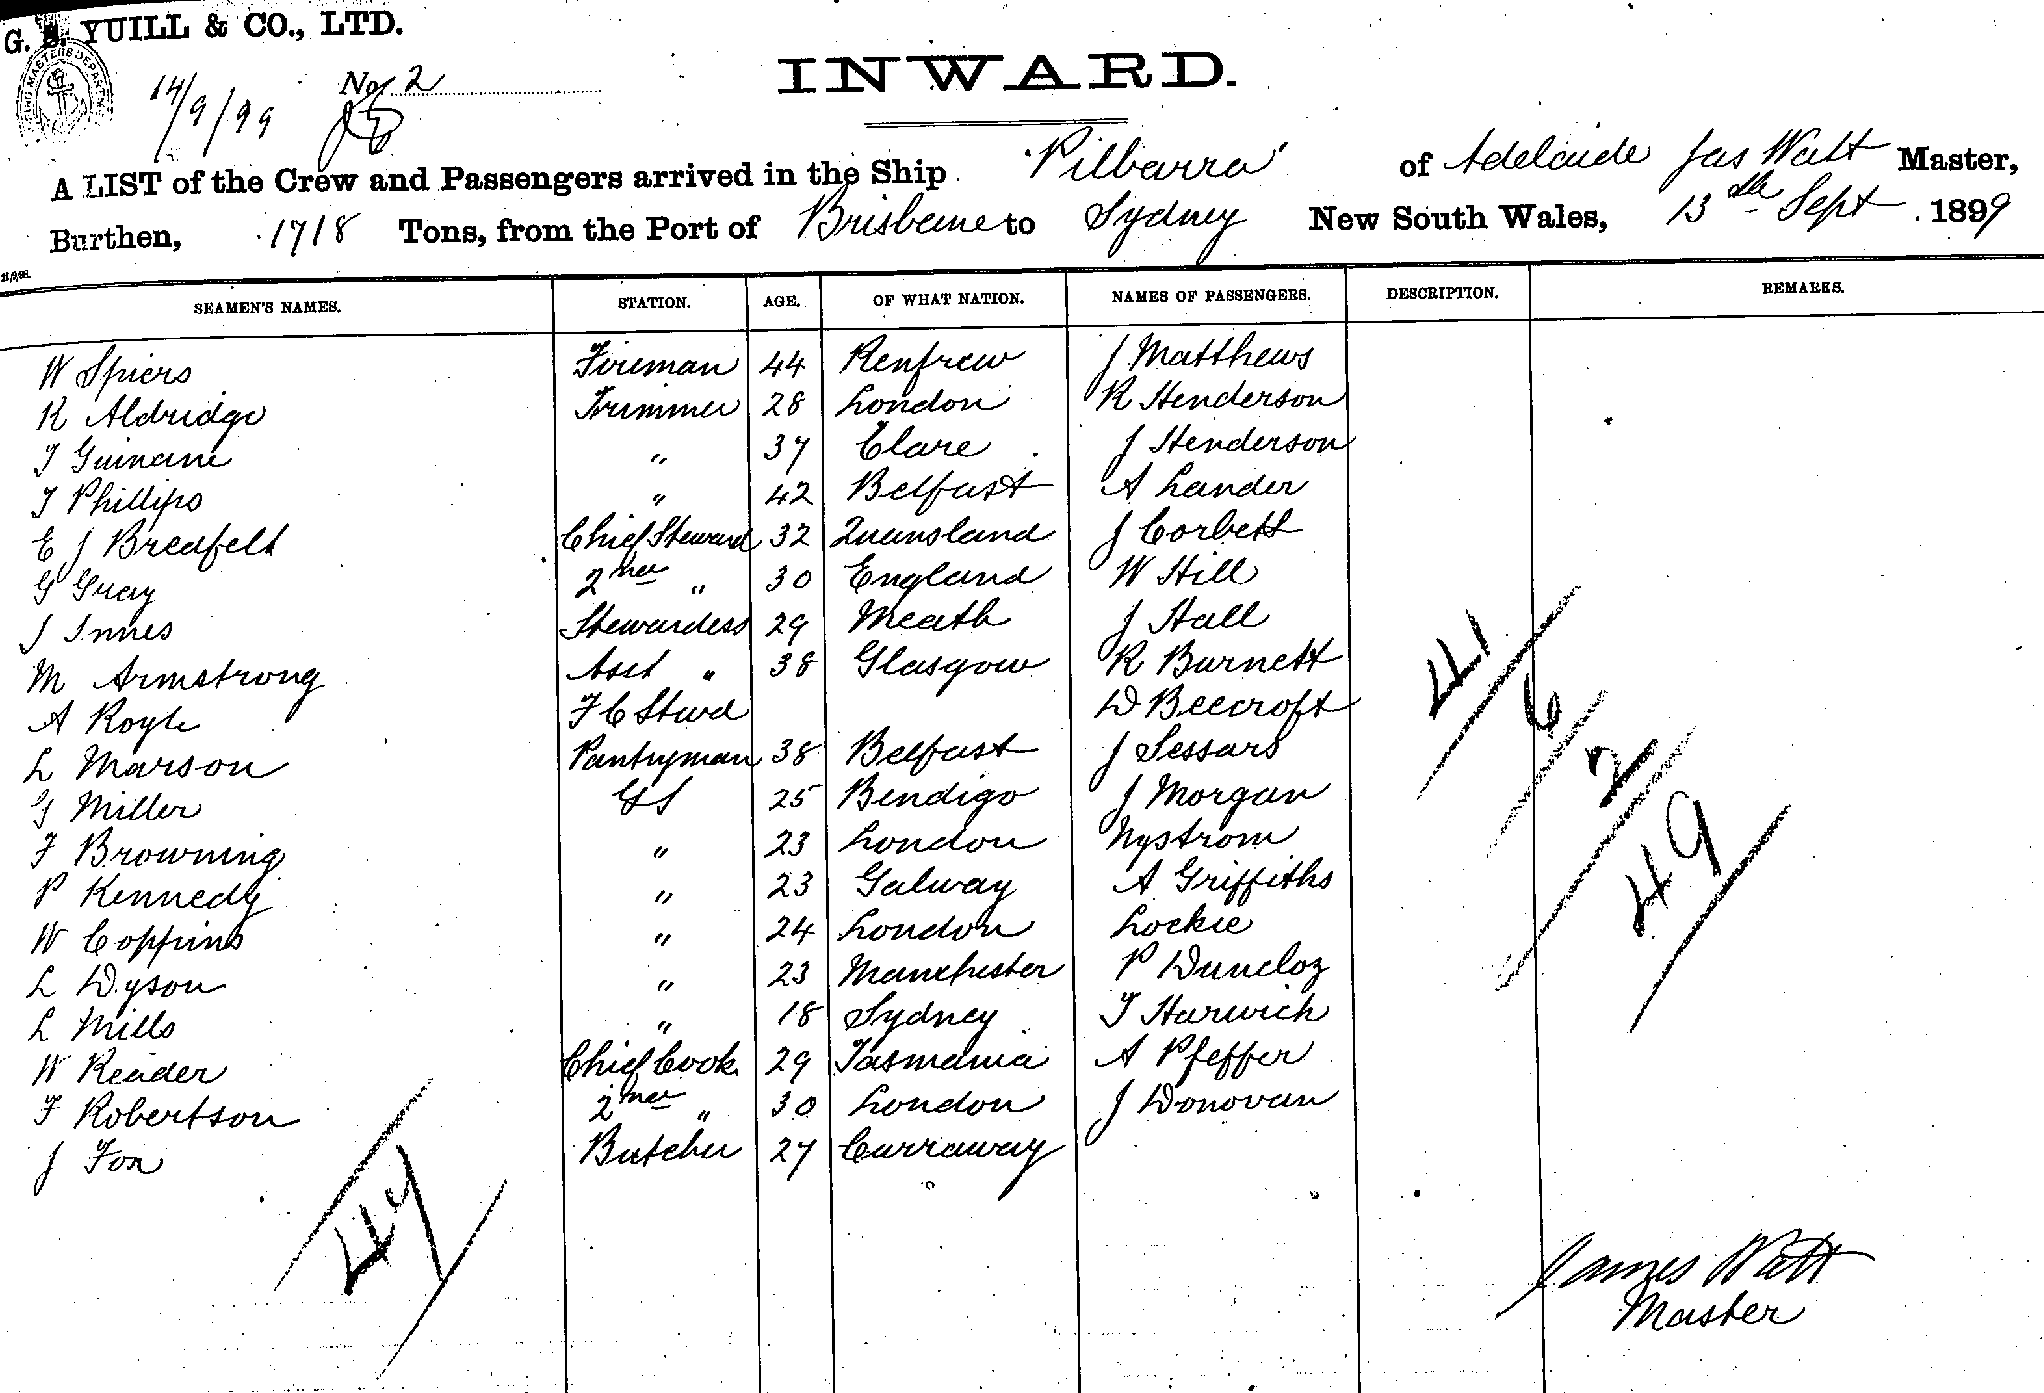 G. S. YUILL & CO., LTD.
14/9/99 No. 2
INWARD.
A LIST of the Crew and Passengers arrived in the Ship 'Pilbarra' of Adelaide Jas Watt Master,
Burthen, 1718 Tons, from the Port of Brisbane to Sydney New South Wales, 13th Sept 1899
SEAMEN'S NAMES. STATION. AGE. OF WHAT NATION. NAMES OF PASSENGERS. DESCRIPTION. REMARKS.
W Spiers Fireman 44 Renfrew J Matthews
R Aldridge Trimmer 28 London R Henderson
T Guinane " 37 Clare J Henderson
T Phillips " 42 Belfast A Lander
E J Bredfelt Chief Steward 32 Queensland J Corbett
G Gray 2nd " 30 England W Hill
J Innes Stewardess 29 Meath J Hall
M Armstrong Asst " 38 Glasgow R Burnett
A Royle F C Stwd D Beecroft
L Marson Pantryman 38 Belfast J Sessars
G Miller GS 25 Bendigo J Morgan
F Browning " 23 London Nystrom
P Kennedy " 23 Galway A Griffiths
W Coppins " 24 London Lockie
L Dyson " 23 Manchester P Duncloz
L Mills " 18 Sydney T Harwich
W Reader Chief Cook 29 Tasmania A Pfeffer
F Robertson 2nd " 30 London J Donovan
J Fox Butcher 27 Carraway
41
6
2
49
47
James Watt
Master